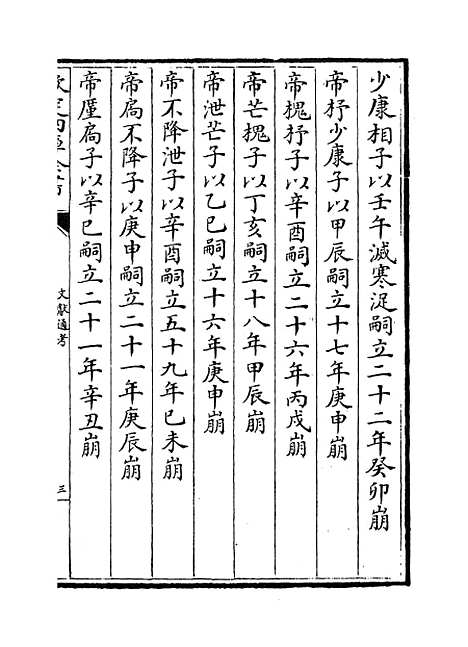 少康相子以壬午滅寒浞嗣立二十二年癸卯崩
帝杼少康子以甲辰嗣立十七年庚申崩
帝槐杼子以辛酉嗣立二十六年丙戌崩
帝芒槐子以丁亥嗣立十八年甲辰崩
帝泄芒子以乙巳嗣立十六年庚申崩
帝不降泄子以辛酉嗣立五十九年已未崩
帝扃不降子以庚申嗣立二十一年庚辰崩
帝厪扃子以辛巳嗣立二十一年辛丑崩
欽定四庫全書
文獻通考
三